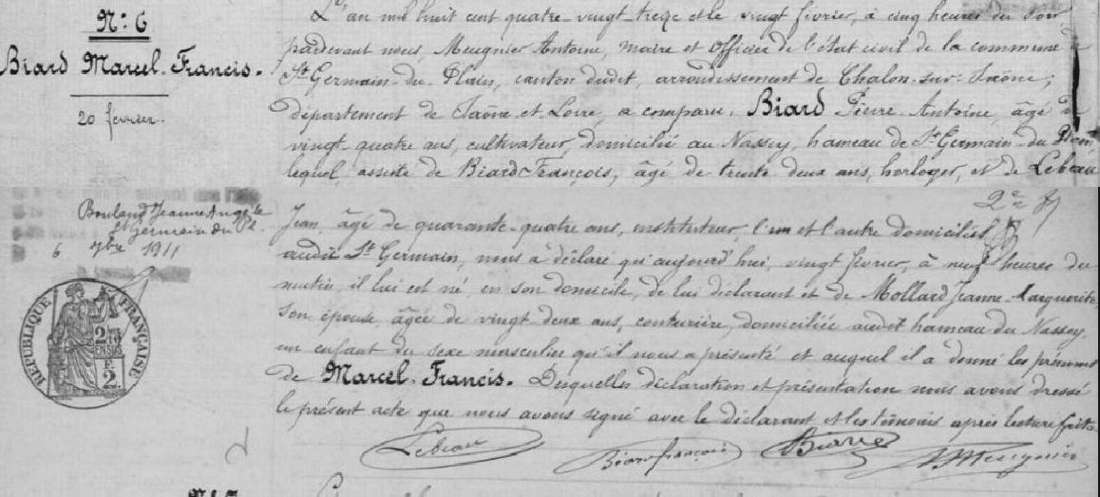 N.º 6
Biard Marcel-Francis.
20 février.
L'an mil huit cent quatre-vingt-treize et le vingt février, à cinq heures du soir
pardevant nous, Meugnier Antoine, maire et officier de l'état civil de la commune de
St Germain-du-Plain, canton dudit, arrondissement de Chalon-sur-Saône,
département de Saône-et-Loire, a comparu, Biard Pierre-Antoine, âgé de
vingt-quatre ans, cultivateur, domicilié au Nassey, hameau de St Germain-du-Plain,
lequel, assisté de Biard François, âgé de trente-deux ans, horloger, et de Lebeau
2e
Jean, âgé de quarante-quatre ans, instituteur, l'un et l'autre domiciliés
audit St Germain, nous a déclaré qu'aujourd'hui, vingt février, à neuf heures du
matin, il lui est né, en son domicile, de lui déclarant et de Mollard Jeanne-Marguerite,
son épouse, âgée de vingt-deux ans, couturière, domiciliée audit hameau du Nassey,
un enfant du sexe masculin qu'il nous a présenté et auquel il a donné les prénoms
de Marcel-Francis. Desquelles déclaration et présentation nous avons dressé
le présent acte que nous avons signé avec le déclarant et les témoins après lecture faite.
Jeanne
St Germain du Pl.
6 7bre 1911
RÉPUBLIQUE FRANÇAISE
2
Lebeau
Biard françois
Biard
A Meugnier